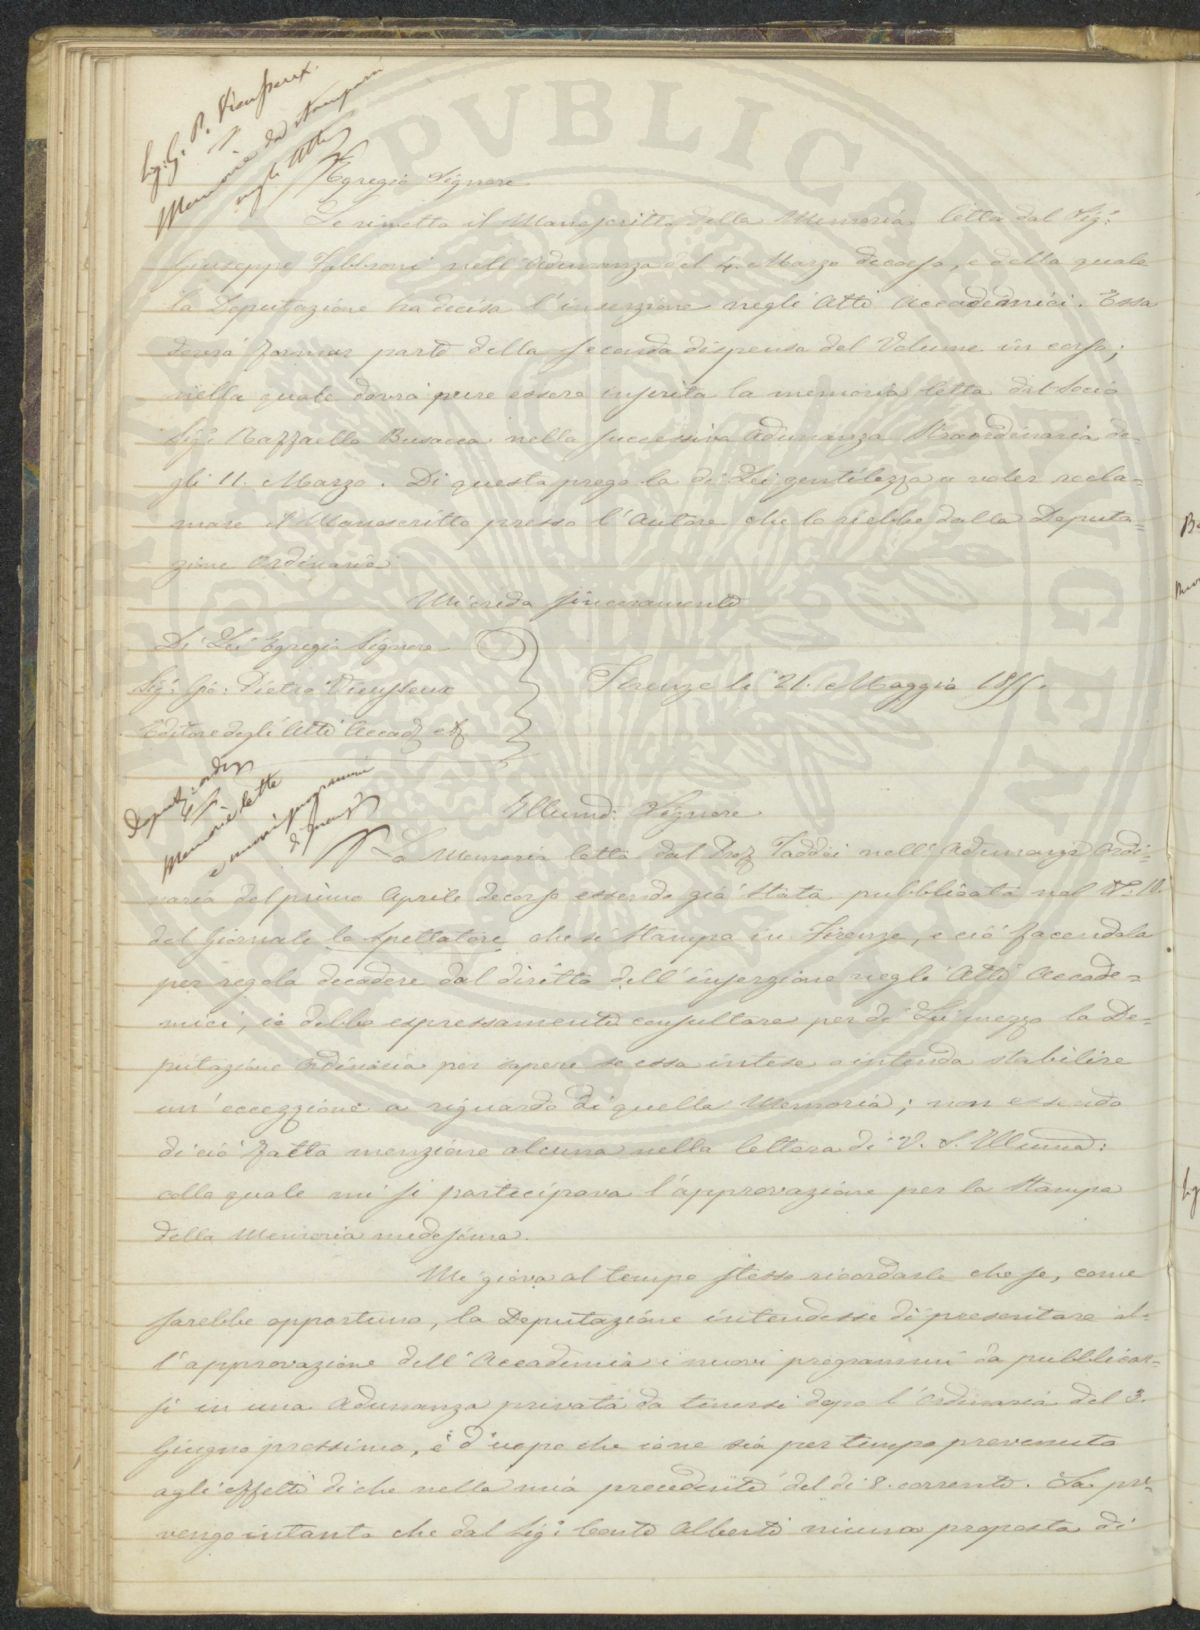 Sig: G: P. Vieusseux
Memoria da stamparsi
negli Atti
Egregio Signore
Le rimetto il Manoscritto della Memoria letta dal Sig:
Giuseppe Fabbroni nell'Adunanza del 4. Marzo decorso, e della quale
la Deputazione ha decisa l'inserzione negli Atti Accademici. Essa
dovrà formar parte della seconda dispensa del Volume in corso;
nella quale dovrà pure essere inserita la memoria letta dal Socio
Sig: Raffaello Busacca nella successiva Adunanza Straordinaria de-
gli 11. Marzo. Di questa prego la di Lei gentilezza a voler recla=
mare il Manoscritto presso l'Autore che lo riebbe dalla Deputa=
zione Ordinaria
Mi creda sinceramente
Di Lei Egregio Signore
Sig: Gio: Pietro Vieusseux
Editore degli Atti Accad
Firenze li 21. Maggio 1855.
Deputaz: ord
Memorie lette
e nuovi programmi
di premj
Illumo: Signore
La Memoria letta dal Prof Taddei nell'Adunanza Ordi=
naria del primo Aprile decorso essendo già stata pubblicata nel N°. 10.
del Giornale lo Spettatore che si stampa in Firenze, e ciò facendola
per regola decadere dal diritto dell'inserzione negli Atti Accade=
mici, io debbo espressamente consultare per di Lei mezzo la De=
putazione Ordinaria per sapere se essa intese o intenda stabilire
un'eccezzione a riguardo di quella Memoria; non essendo
di ciò fatta menzione alcuna nella lettera di V. S. Illuma:
colla quale mi si partecipava l'approvazione per la Stampa
della Memoria medesima.
Mi giova al tempo stesso ricordarle che se, come
sarebbe opportuno, la Deputazione intendesse di presentare al-
l'approvazione dell'Accademia i nuovi programmi da pubblicar=
si in una Adunanza privata da tenersi dopo l'Ordinaria del 3.
Giugno prossimo, è d'uopo che io ne sia per tempo prevenuto
agli effetti di che nella mia precedente del di 8. corrente. La pre-
vengo intanto che dal Sig: Conte Alberti niuna proposta di